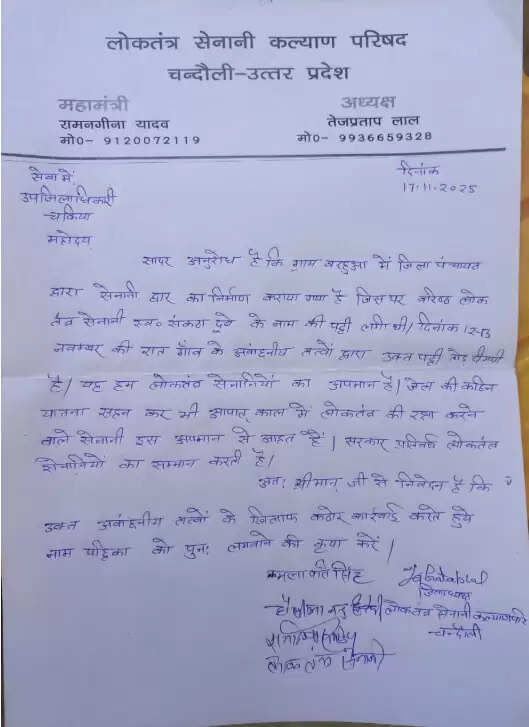 लोकतंत्र सेनानी कल्याण परिषद
चन्दौली-उत्तर प्रदेश
महामंत्री
रामनगीना यादव
मो0- 9120072119
अध्यक्ष
तेजप्रताप लाल
मो0- 9936659328
दिनांक
17.11.2025
सेवा में
उपजिलाधिकारी
चकिया
महोदय
सादर अनुरोध है कि ग्राम बरहुआ में जिला पंचायत
द्वारा सेनानी द्वार का निर्माण कराया गया है जिस पर वरिष्ठ लोक
तंत्र सेनानी स्व० संकठा दूबे के नाम की पट्टी लगी थी। दिनांक 12-13
नवम्बर की रात गाँव के अवांछनीय तत्वों द्वारा उक्त पट्टी तोड़ दी गयी
है। यह हम लोकतंत्र सेनानियों का अपमान है। जेल की कठिन
यातना सहन कर भी आपात् काल में लोकतंत्र की रक्षा करने
वाले सेनानी इस अपमान से आहत हैं। सरकार प्रतिवर्ष लोकतंत्र
सेनानियों का सम्मान करती है।
अतः श्रीमान् जी से निवेदन है कि
उक्त अवांछनीय तत्वों के खिलाफ कठोर कार्रवाई करते हुये
नाम पट्टिका को पुनः लगवाने की कृपा करें।
कमलापति सिंह
जिलाध्यक्ष
लोकतंत्र सेनानी कल्याण परि
चन्दौली
लोकतंत्र सेनानी